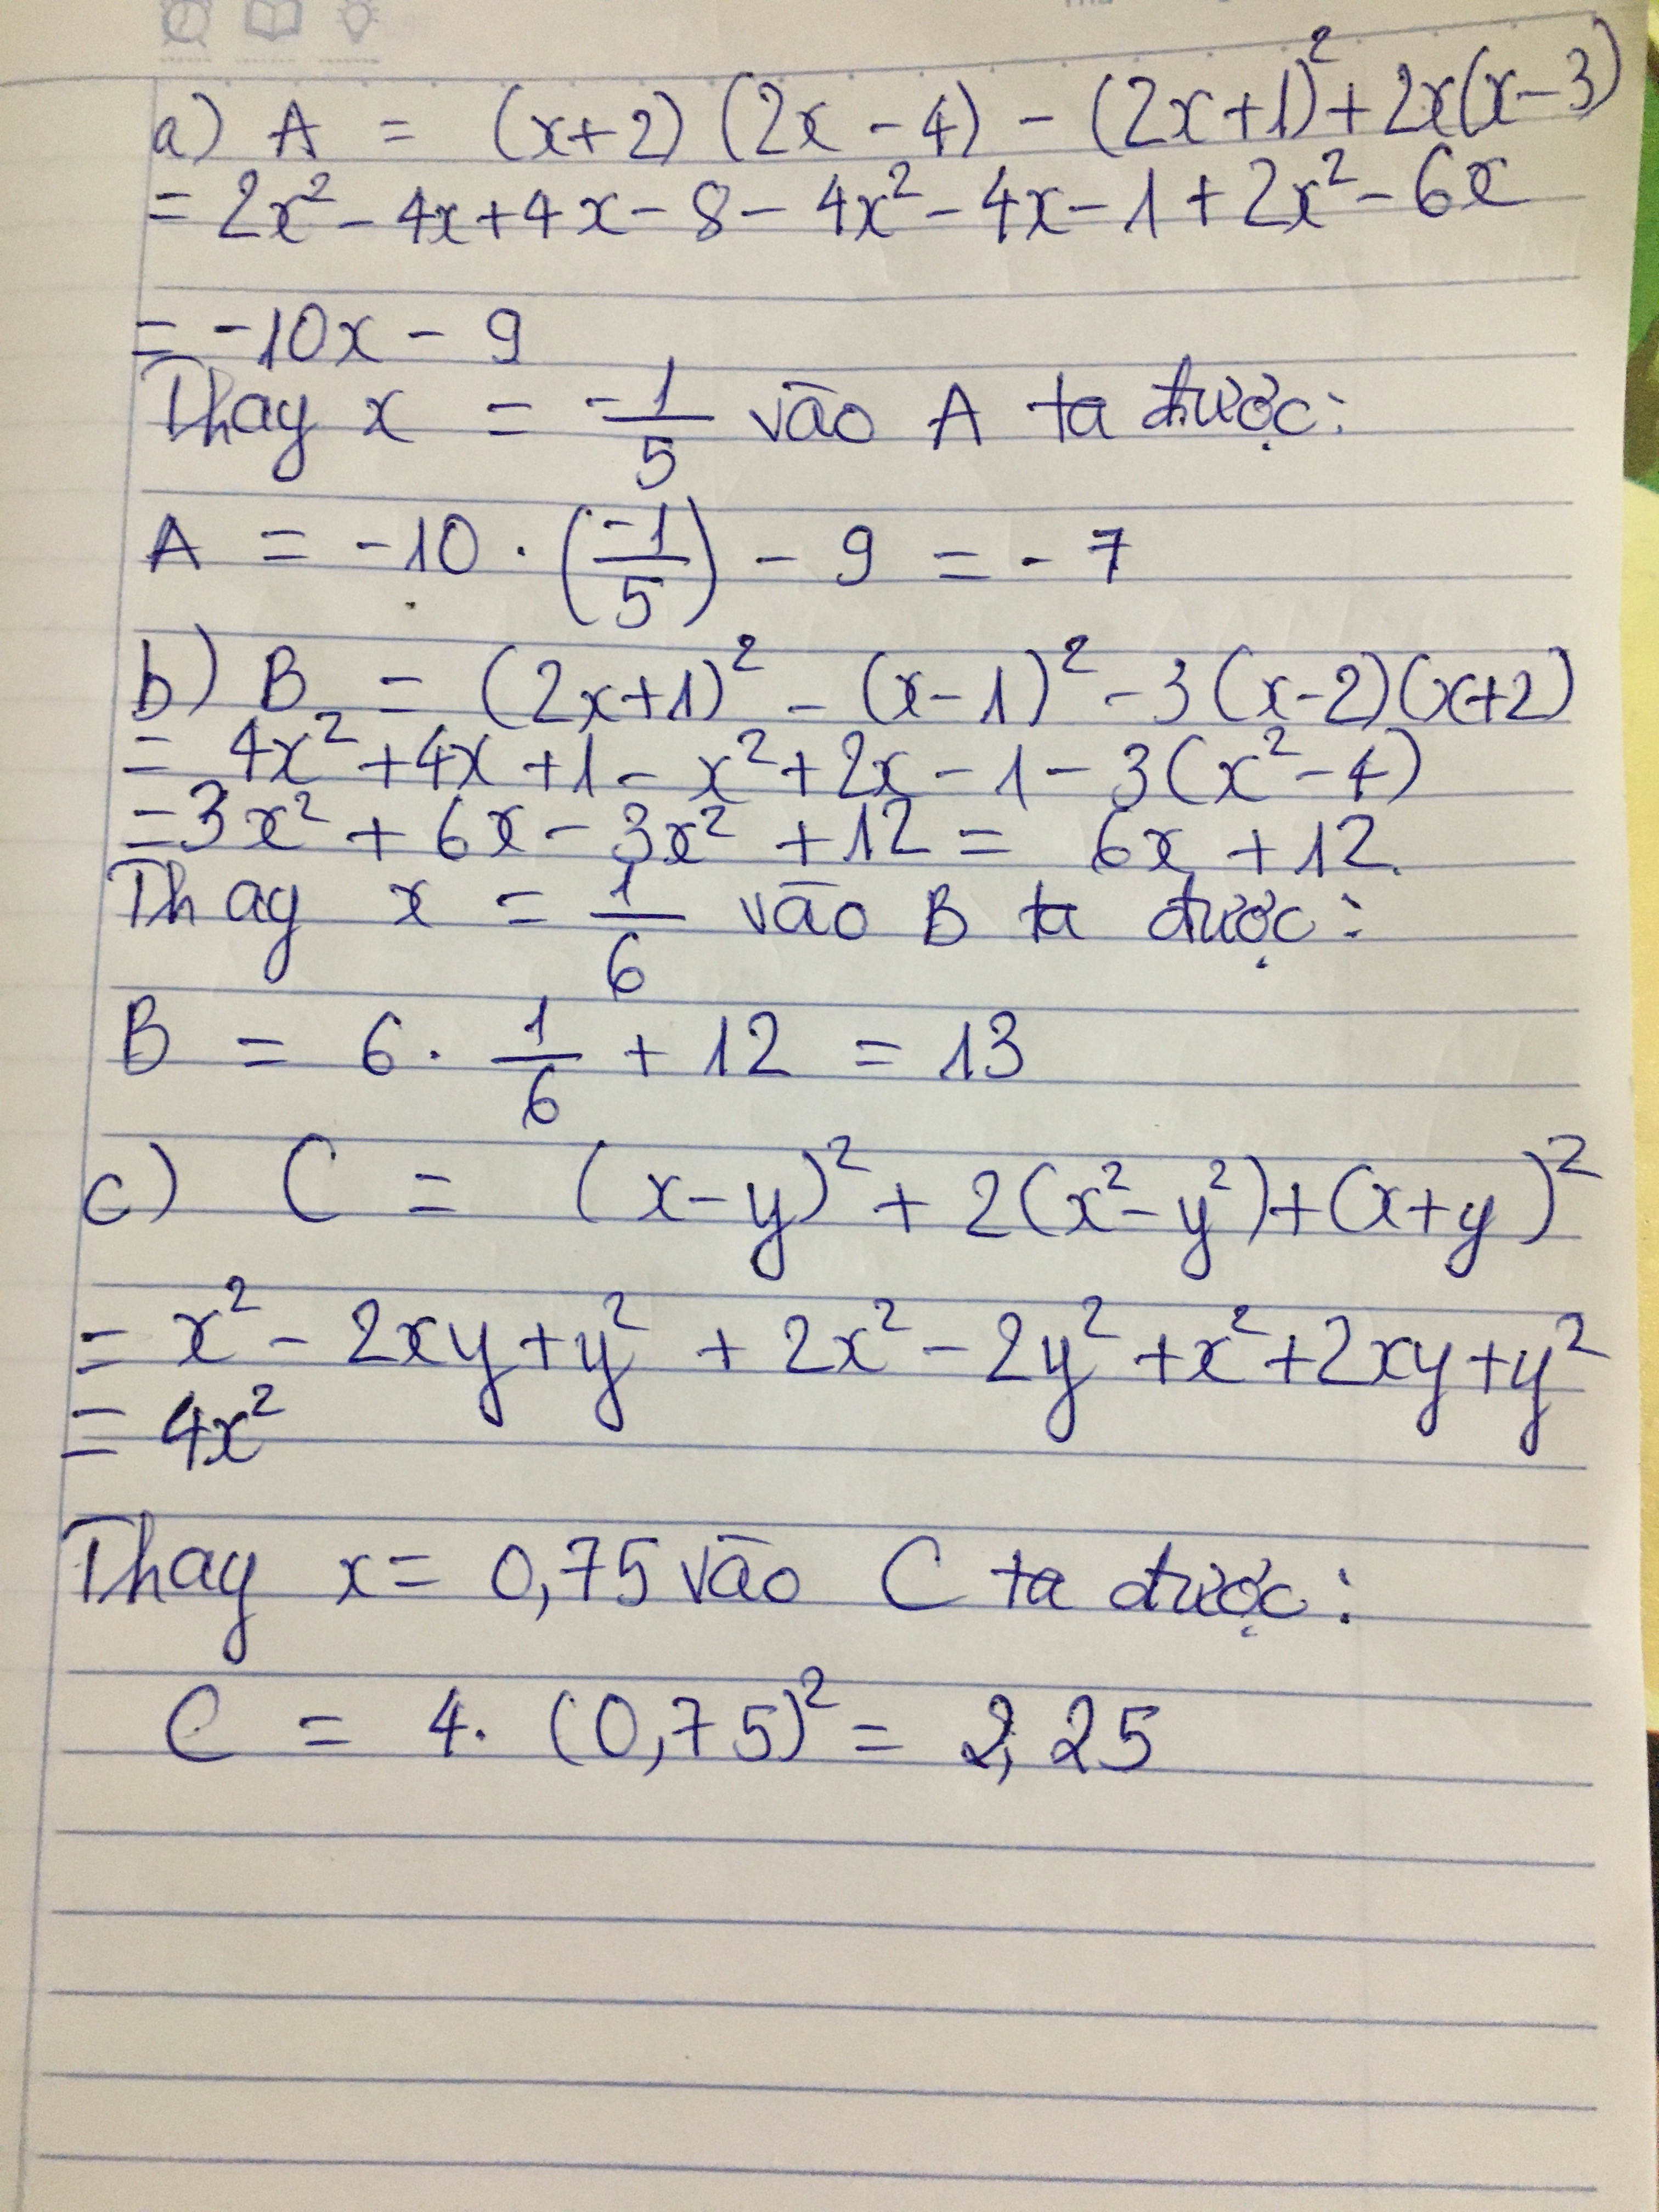 a) A = (x+2)(2x-4)-(2x+1)²+2x(x-3)
= 2x²-4x+4x-8-4x²-4x-1+2x²-6x
= -10x-9
Thay x = -1/5 vào A ta được:
A = -10.(-1/5)-9 = -7
b) B = (2x+1)²-(x-1)²-3(x-2)(x+2)
= 4x²+4x+1-x²+2x-1-3(x²-4)
=3x²+6x-3x²+12= 6x+12
Thay x = 1/6 vào B ta được:
B = 6.1/6+12 = 13
c) C = (x-y)²+2(x²-y²)+(x+y)²
= x²-2xy+y²+2x²-2y²+x²+2xy+y²
= 4x²
Thay x= 0,75 vào C ta được:
C = 4.(0,75)²= 2,25